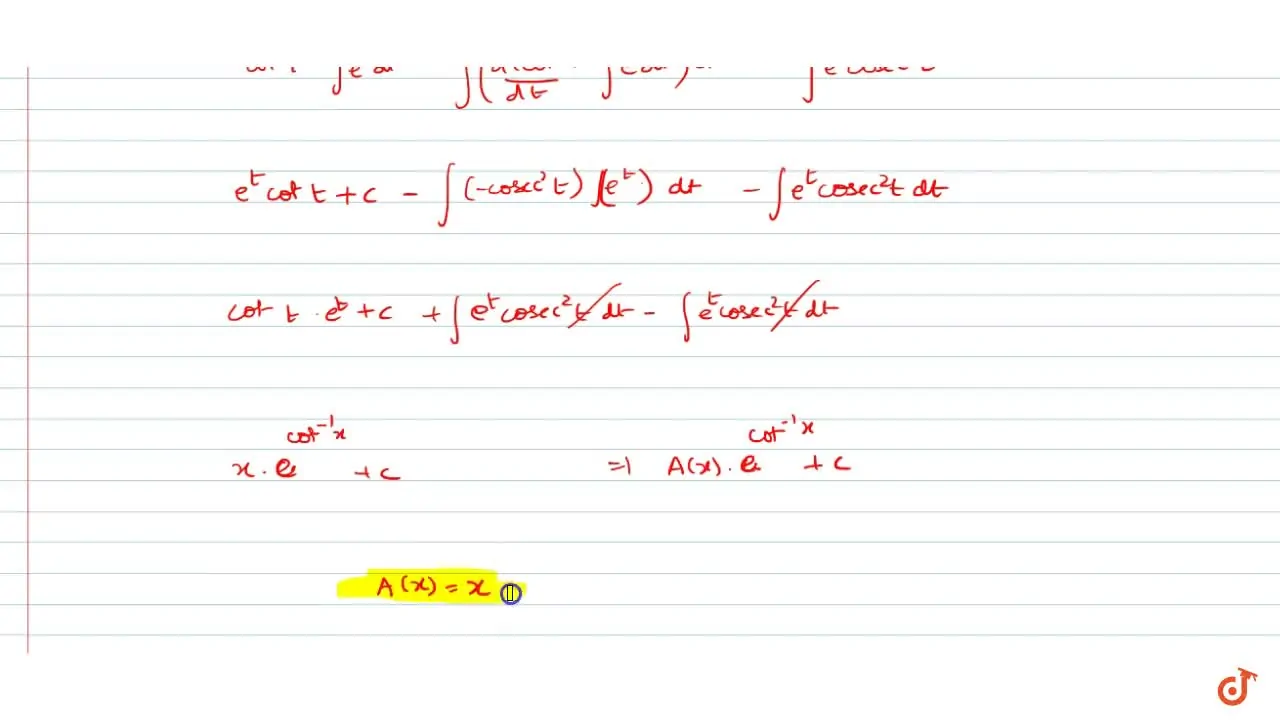 ∫ dt ∫
e^t cot t + c - ∫ (-cosec² t) (e^t) dt - ∫ e^t cosec² t dt
cot t · e^t + c + ∫ e^t cosec² t dt - ∫ e^t cosec² t dt
x · e^(cot⁻¹x) + c =) A(x) · e^(cot⁻¹x) + c
A(x) = x